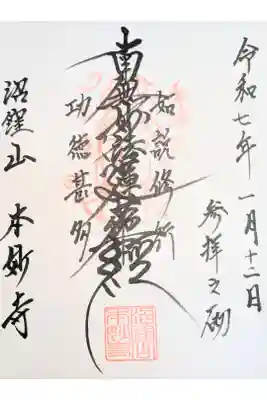 令和七年 一月十二日
参拝之砌
如説修行
南無妙法蓮華経
功徳甚多
沼窪山 本妙寺